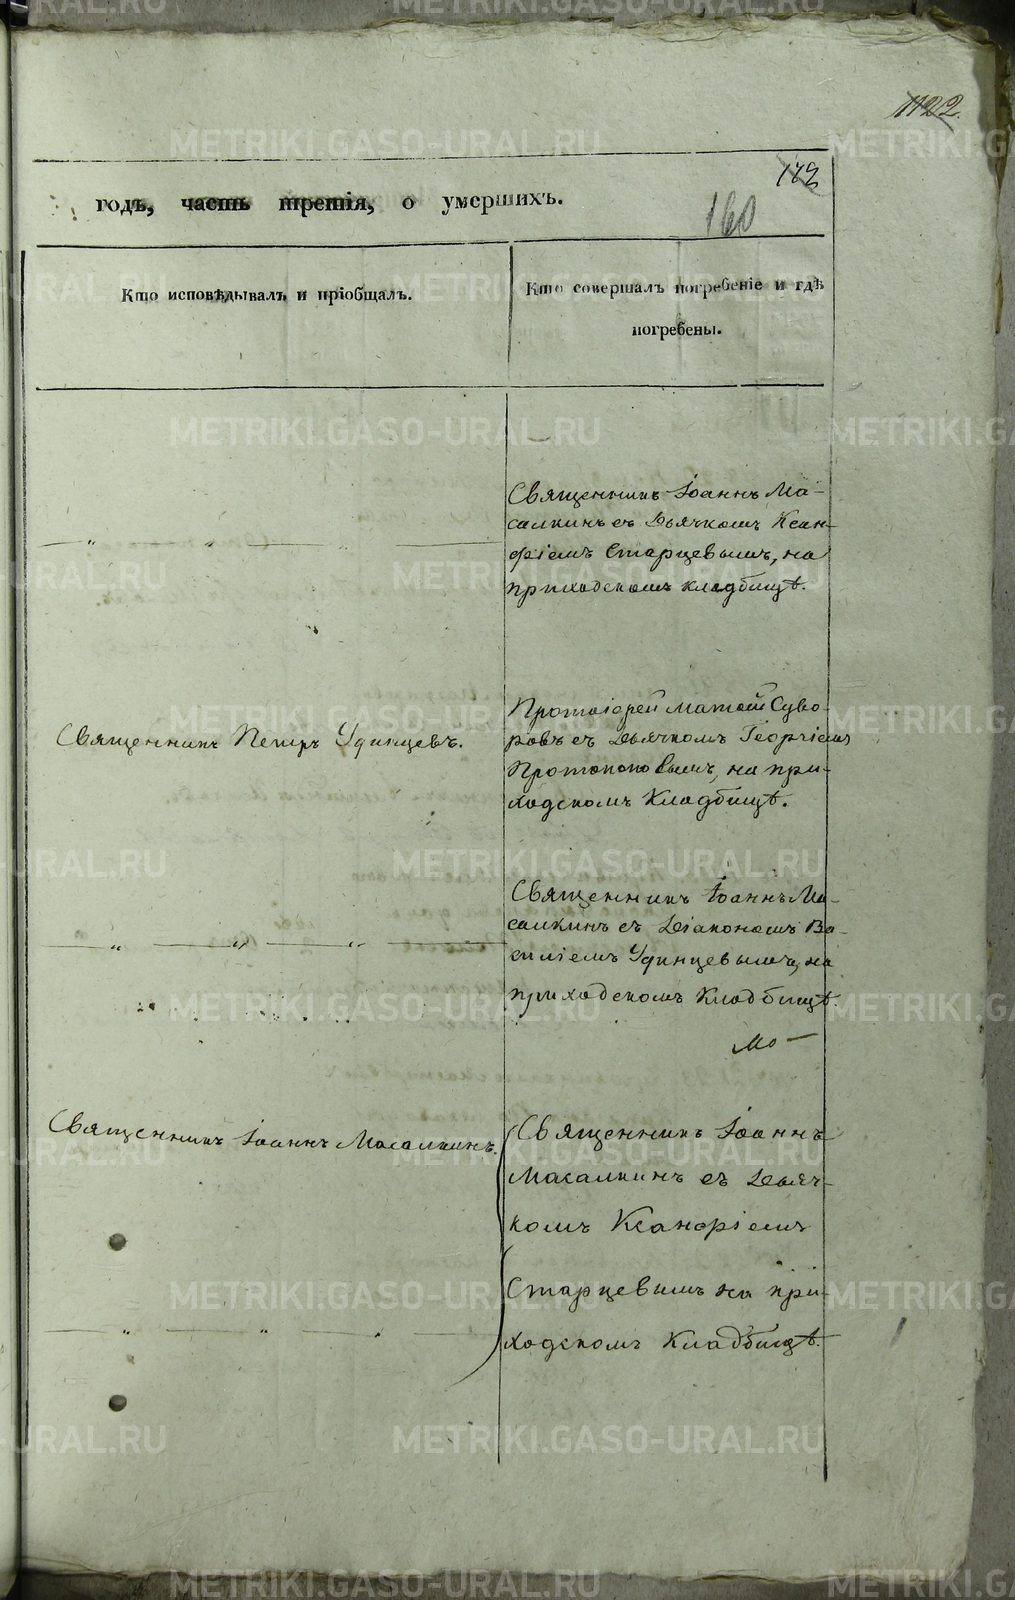 1122.
172
160
годъ, часть третія, о умершихъ.
Кто исповѣдывалъ и пріобщалъ.
Кто совершалъ погребеніе и гдѣ
погребены.
Священникъ Іоаннъ Ма-
салкинъ съ Дьячкомъ Ксан-
фіемъ Старцевымъ, на
приходскомъ кладбищѣ.
Священникъ Петръ Удинцевъ.
Протоіерей Матѳій Суво-
ровъ съ Дьячкомъ Георгіемъ
Протопоповымъ, на при-
ходскомъ Кладбищѣ.
Священникъ Іоаннъ Ма-
салкинъ съ Діакономъ Ва-
силіемъ Удинцевымъ, на
приходскомъ Кладбищѣ.
Мо-
Священникъ Іоаннъ Масалкинъ.
Священникъ Іоаннъ
Масалкинъ съ Дьяч-
комъ Ксанфіемъ
Старцевымъ на при-
ходскомъ Кладбищѣ.
METRIKI.GASO-URAL.RU